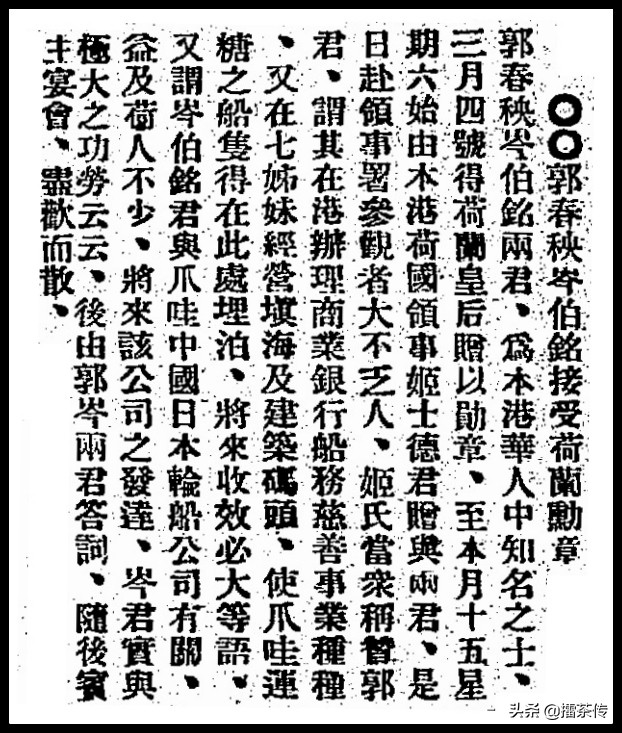 ○○郭春秧岑伯銘接受荷蘭勳章
郭春秧岑伯銘兩君、爲本港華人中知名之士、
三月四號得荷蘭皇后贈以勛章、至本月十五星
期六始由本港荷國領事姬士德君贈與兩君、是
日赴領事署參觀者大不乏人、姬氏當衆稱贊郭
君、謂其在港辦理商業銀行船務慈善事業種種
、又在七姊妹經營塡海及建築碼頭、使爪哇運
糖之船隻得在此處埋泊、將來收效必大等語、
又謂岑伯銘君與爪哇中國日本輪船公司有關、
益及荷人不少、將來該公司之發達、岑君實與
極大之功勞云云、後由郭岑兩君答詞、隨後賓
主宴會、盡歡而散、
头条 @擂茶传